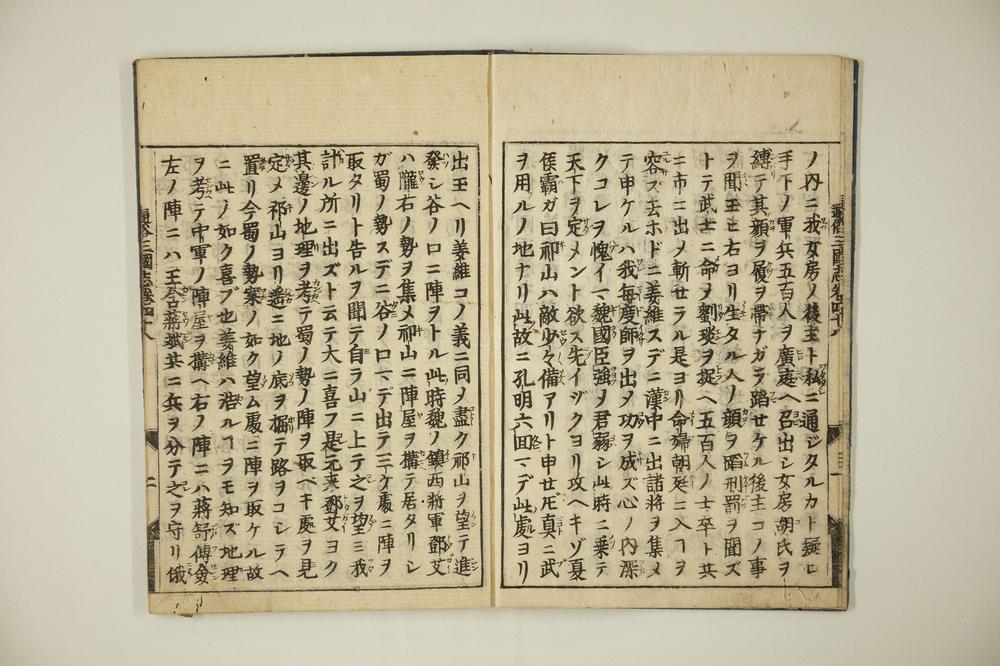 ノ内ニ我女房ノ後主ト私ニ通ジタルカト疑ヒ
手下ノ軍兵五百人ヲ廣庭ヘ召出シ女房胡氏ヲ
縛テ其顔ヲ履ヲ帯ナガラ蹈セケル後主コノ事
ヲ聞玉ヒ古ヨリ生タル人ノ顔ヲ蹈刑罰ヲ聞ズ
トテ武士ニ命乄劉琰ヲ捉ヘ五百人ノ士卒ト共
ニ市ニ出乄斬セラル是ヨリ命婦朝庭ニ入ヿヲ
容ズ去ホドニ姜維スデニ漢中ニ出諸將ヲ集メ
テ申ケルハ我毎度師ヲ出乄功ヲ成ズ心ノ内深
クコレヲ愧イマ魏國臣強乄君弱シ此時ニ乗テ
天下ヲ定メント欲ス先イヅクヨリ攻ヘキゾ夏
侯霸ガ曰祁山ハ敵少々備アリト申セ𪜈真ニ武
ヲ用ルノ地ナリ此故ニ孔明六回マデ此處ヨリ
出玉ヘリ姜維コノ義ニ同乄盡ク祁山ヲ望テ進
發シ谷ノ口ニ陣ヲトル此時魏ノ鎮西將軍鄧艾
ハ隴右ノ勢ヲ集メ祁山ニ陣屋ヲ搆テ居タリシ
ガ蜀ノ勢スデニ谷ノ口マデ出テ三ケ處ニ陣ヲ
取タリト告ルヲ聞テ自ラ山ニ上テ之ヲ望ミ我
計ル所ニ出ズト云テ大ニ喜フ是元来鄧艾ヨク
其邊ノ地理ヲ考テ蜀ノ勢ノ陣ヲ取ベキ處ヲ見
定メ祁山ヨリ遥ニ地ノ底ヲ掘テ路ヲコシラヘ
置リ今蜀ノ勢案ノ如ク望ム處ニ陣ヲ取ケル故
ニ此ノ如ク喜ブ也姜維ハ浩ルヿヲモ知ズ地理
ヲ考テ中軍ノ陣屋ヲ搆ヘ右ノ陣ニハ蔣舒傅僉
左ノ陣ニハ王含蔣斌其ニ兵ヲ分テ之ヲ守リ俄
通俗三國志巻四十八
二